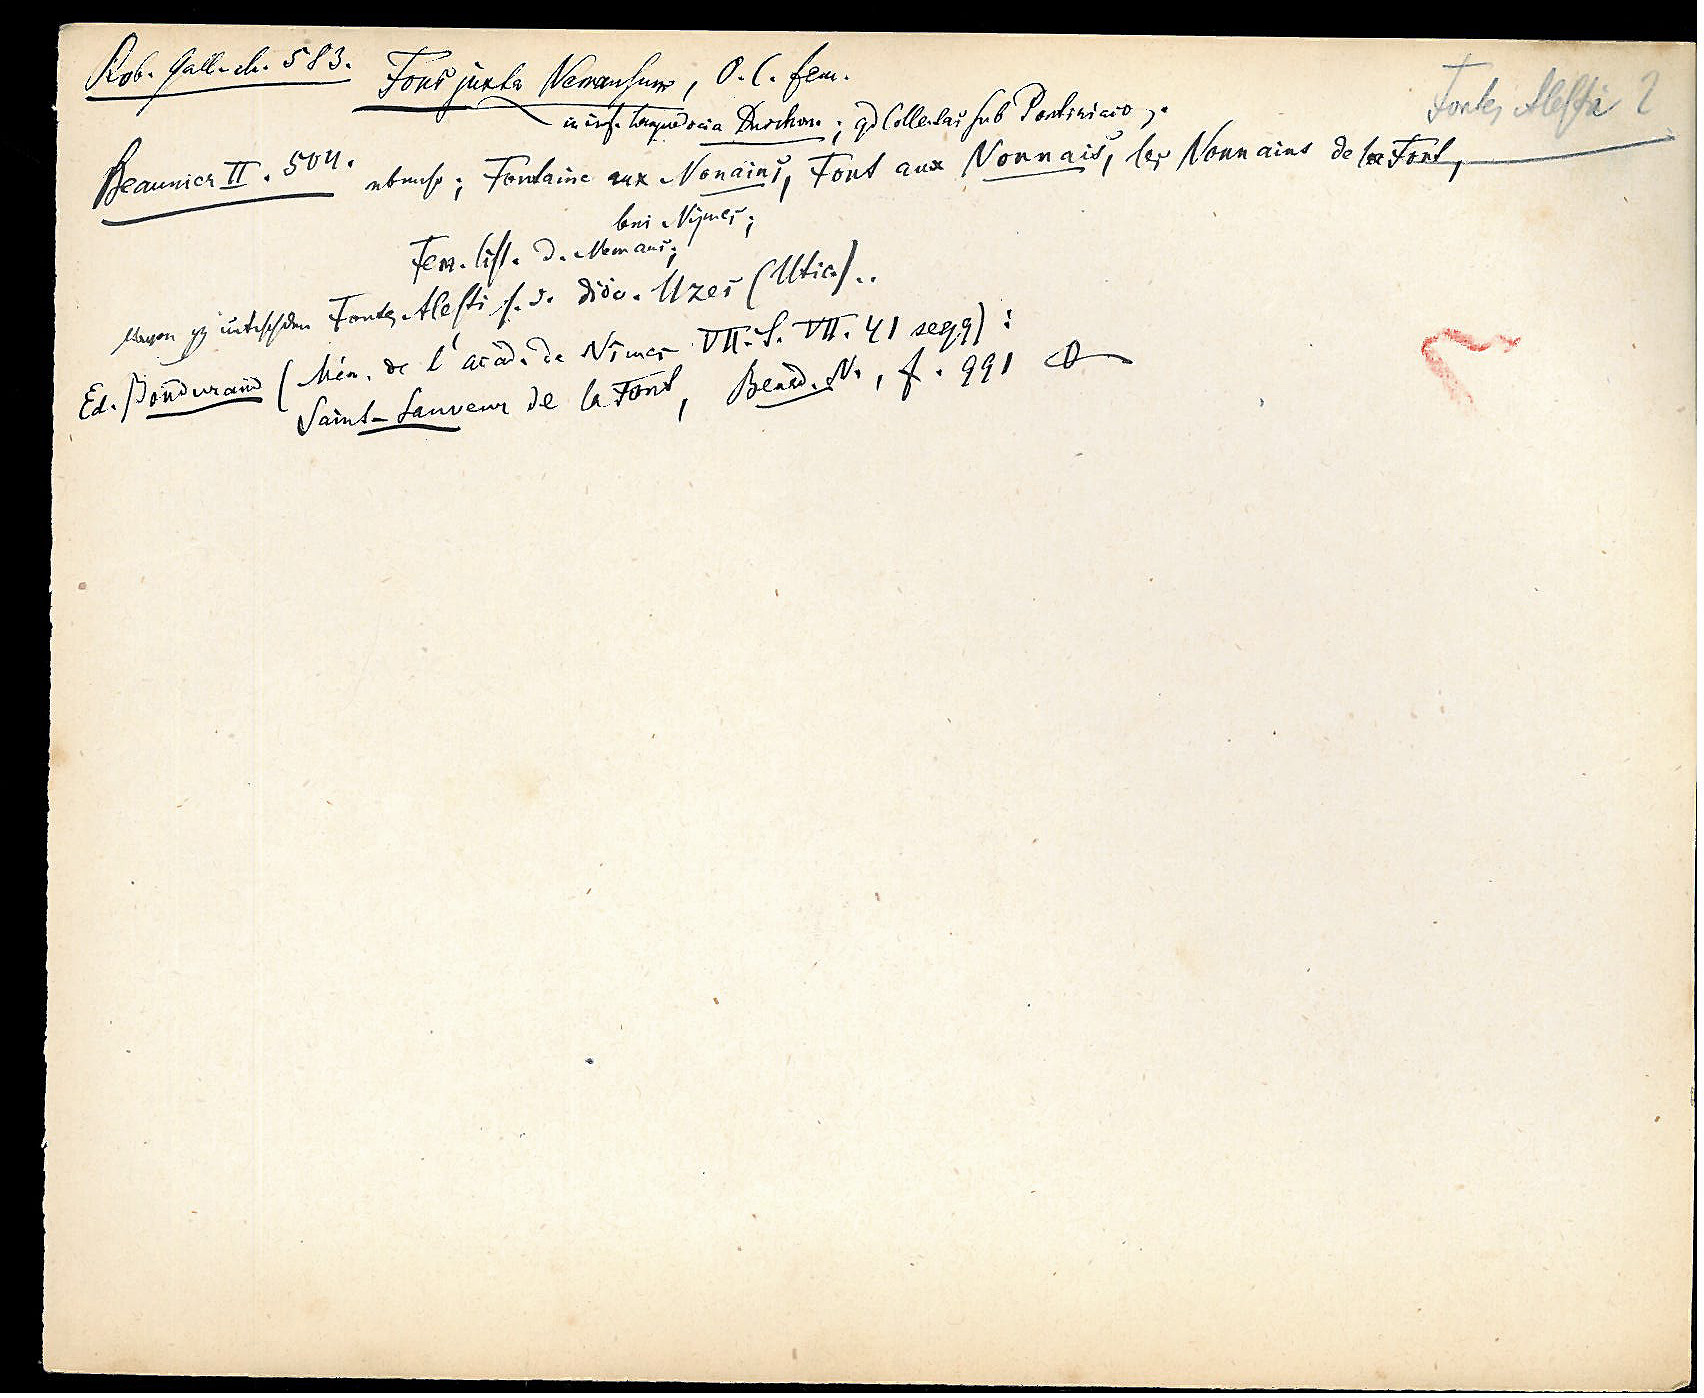 Rob. Gall. ch. 583. Fons juxta Nemausum, O. C. fem.
in inf. Languedocia ; qd Collectas sub Pontiniaco ;.
Fontes Alesti ?
Beaunier II. 504. ; Fontaine aux Nonains, Font aux Nonnais, les Nonnains de la Font,
bei Nîmes;
Fem. Cist. D. Nemaus;
Fontes Alesti s. d. diöc. Uzes (Utic.)..
Ed. Bondurand (Mém. de l'acad. de Nîmes VII. S. VII. 41 seqq) :
Saint-Sauveur de la Font, f. 991